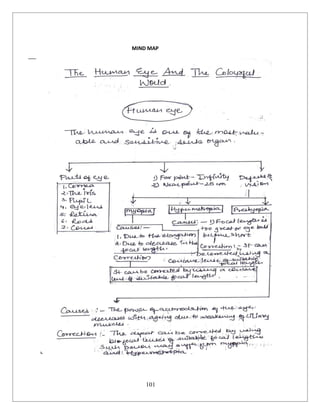 MIND MAP
The Human Eye And The Colourful
World
Human eye
The human eye is one of the most valu-
able and sensitive sense organ.
Parts of eye
1. Cornea
2. The iris
3. Pupil
4. eye lens
5. Retina
6. Rods
7. Cones
1) Far point - Infinity
2) Near point - 25 cm
Defects of
vision
myopia
Hypermetropia
Presbyopia
Causes:-
1. Due to the elongation
2. Due to decrease in the
focal length.
Correction
It can be corrected by using a concave
lens of suitable focal length.
Causes: - 1) Focal length is
too great or eye ball
short
Correction:- It can
be corrected using a
lens of suitable
focal length
Causes :- The power of accomodation of the eye
decreases with ageing due to weakening of ciliary
muscles.
Correction:- The defect can be corrected by using
bifocal lenses of suitable focal length
Such person may suffer from myopia
and hypermetropia.
101